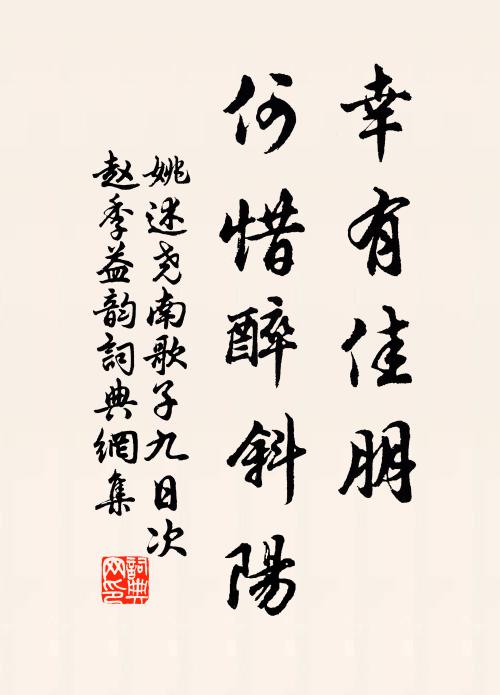 幸有佳朋
何惜醉斜陽
姚述尧南歌子九日次
赵季益韵詞典網集
詞典
网印